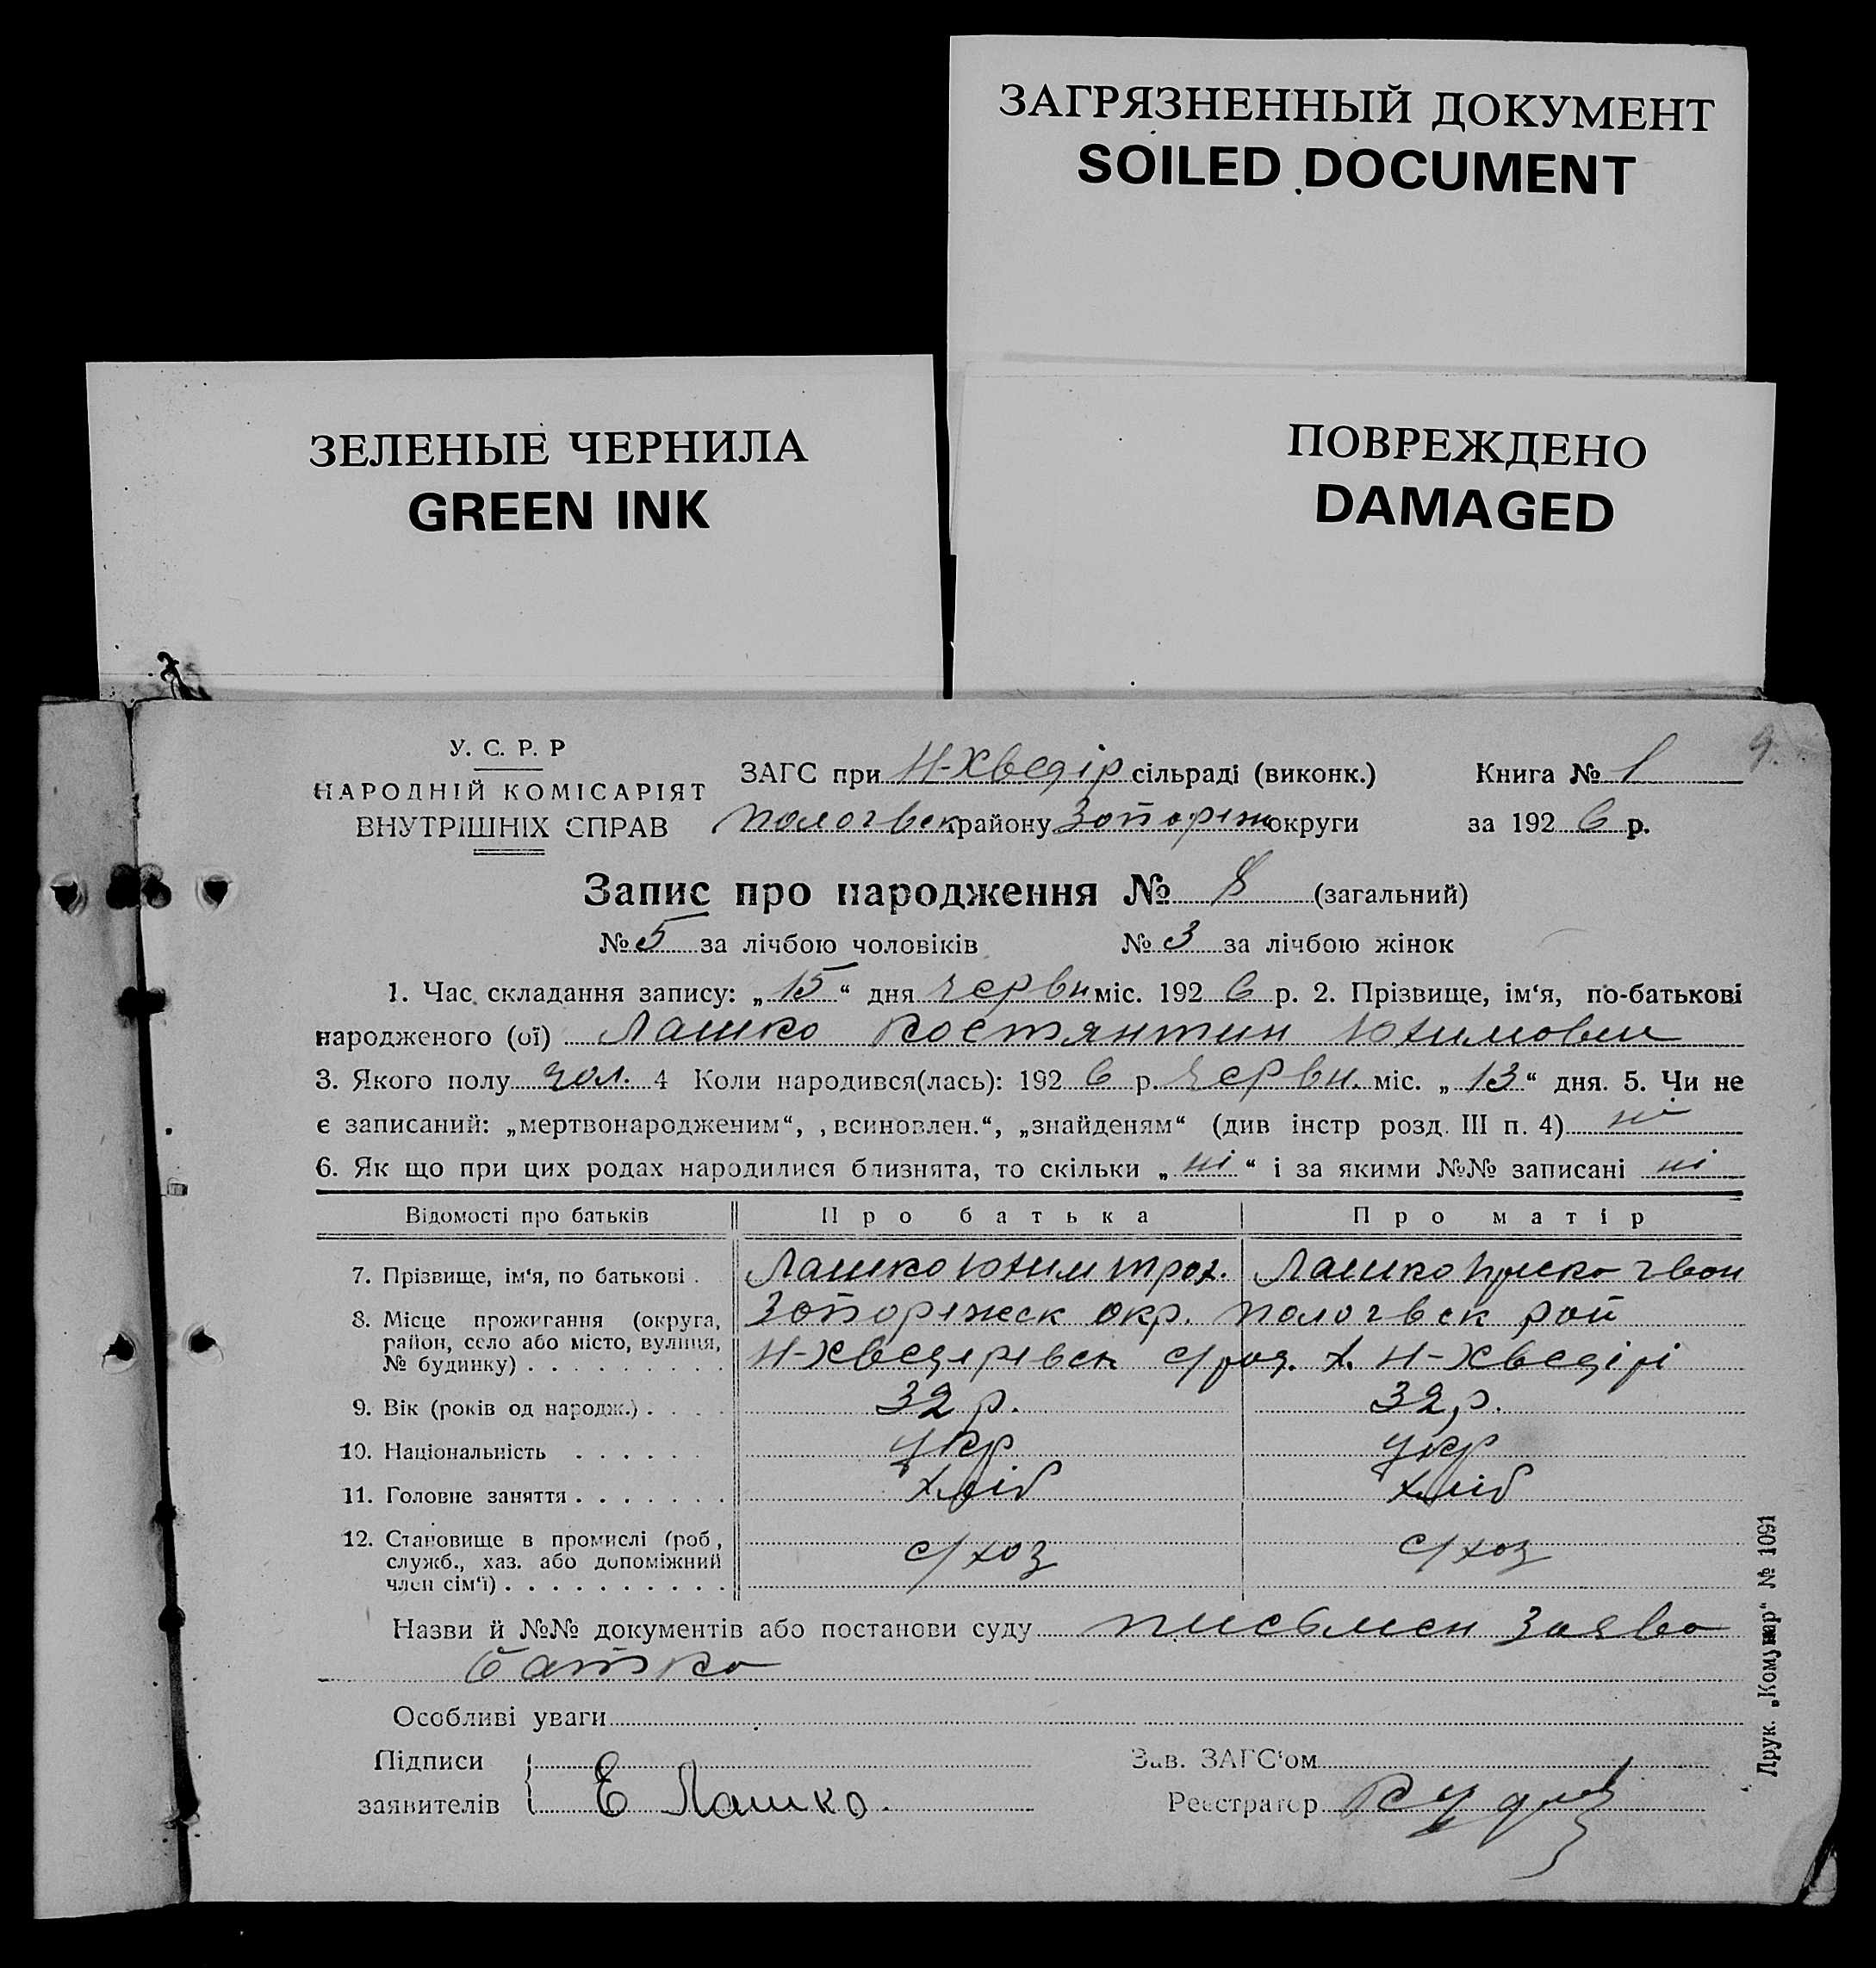 ЗАГРЯЗНЕННЫЙ ДОКУМЕНТ
SOILED DOCUMENT
ЗЕЛЕНЫЕ ЧЕРНИЛА
GREEN INK
ПОВРЕЖДЕНО
DAMAGED
9.
У. С. Р. Р
НАРОДНІЙ КОМІСАРІЯТ
ВНУТРІШНІХ СПРАВ
ЗАГС при Н-Хведір сільраді (виконк.) Книга № 1
Пологівск району Запоріж округи за 1926 р.
Запис про народження № 8 (загальний)
№ 5 за лічбою чоловіків № 3 за лічбою жінок
1. Час складання запису: „15“ дня червн міс. 1926 р. 2. Прізвище, ім‘я, по-батькові
народженого (ої) Лашко Костянтин Юхимович
3. Якого полу чол. 4 Коли народився(лась): 1926 р. червн. міс. „13“ дня. 5. Чи не
є записаний: „мертвонародженим“, „всиновлен.“, „знайденям“ (див інстр розд. III п. 4) ні
6. Як що при цих родах народилися близнята, то скільки „ні“ і за якими №№ записані ні
Відомості про батьків Про батька Про матір
7. Прізвище, ім‘я, по батькові . Лашко Юхим Трох. Лашко
8. Місце проживання (округа, район, село або місто, вулиця, № будинку) Запоріжск окр. Пологівск рай
Н-Хведерівск с/рад. х. Н-Хведірі
9. Вік (років од народж.) 32 р. 32 р.
10. Національність укр укр
11. Головне заняття хліб хліб
12. Становище в промислі (роб, служб., хаз. або допоміжний член сім‘ї) с/хоз с/хоз
Назви й №№ документів або постанови суду письмен заява
батька
Особливі уваги
Підписи Зав. ЗАГС‘ом
заявителів Е Лашко. Реєстратор
Друк. „Комунар“ № 1091